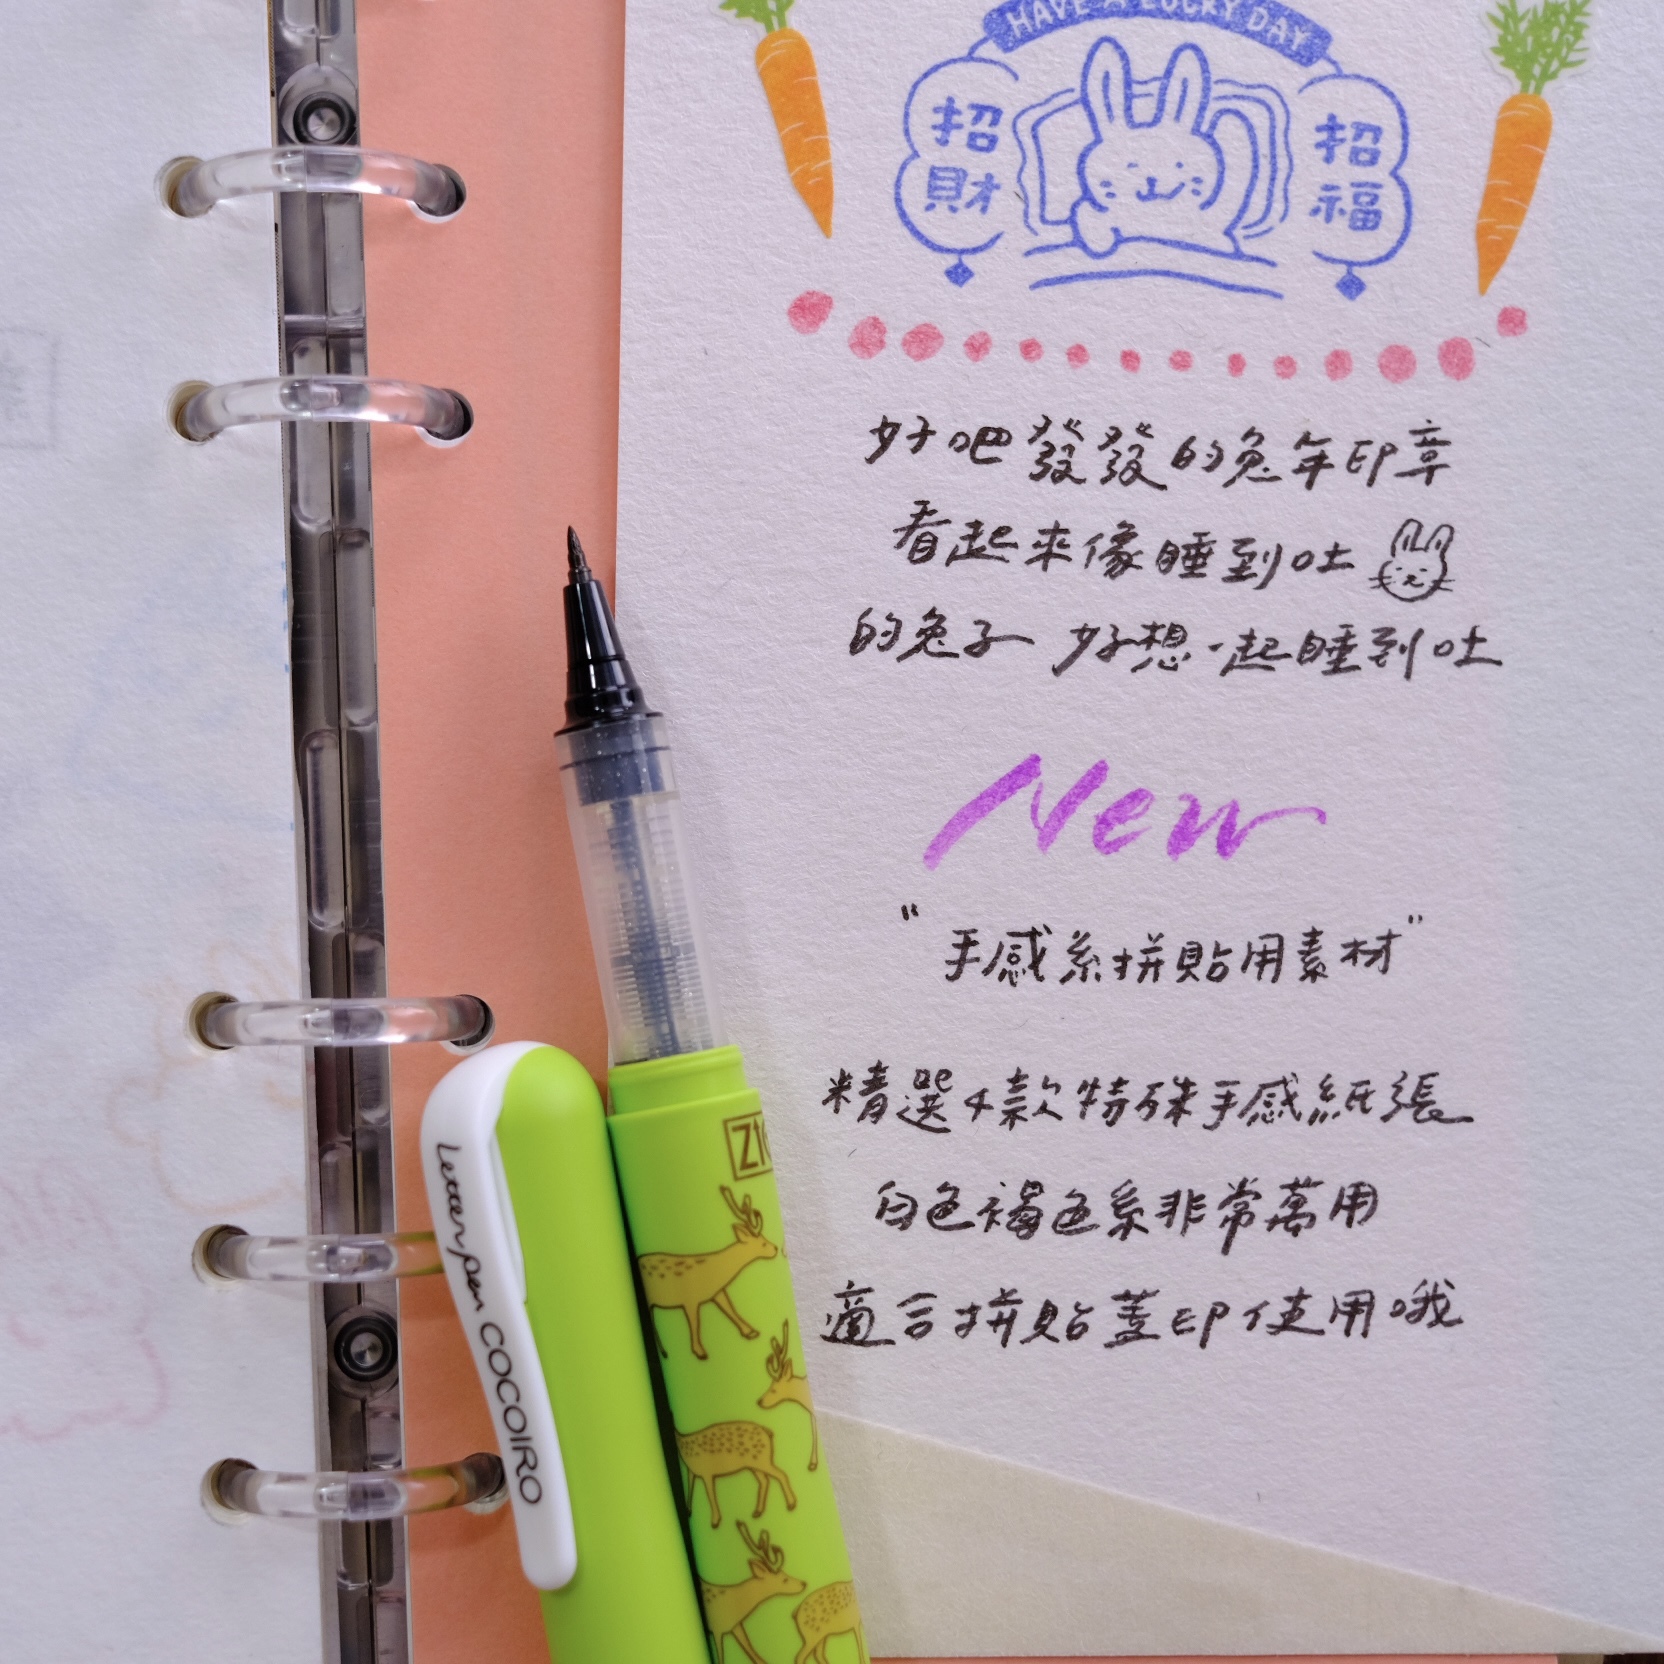 HAVE A LUCKY DAY
招財
招福
好吧發發的兔年印章
看起來像睡到吐
的兔子 好想一起睡到吐
New
"手感系拼貼用素材"
精選4款特殊手感紙張
白色褐色系非常萬用
適合拼貼蓋印使用哦
Letter pen COCOIRO